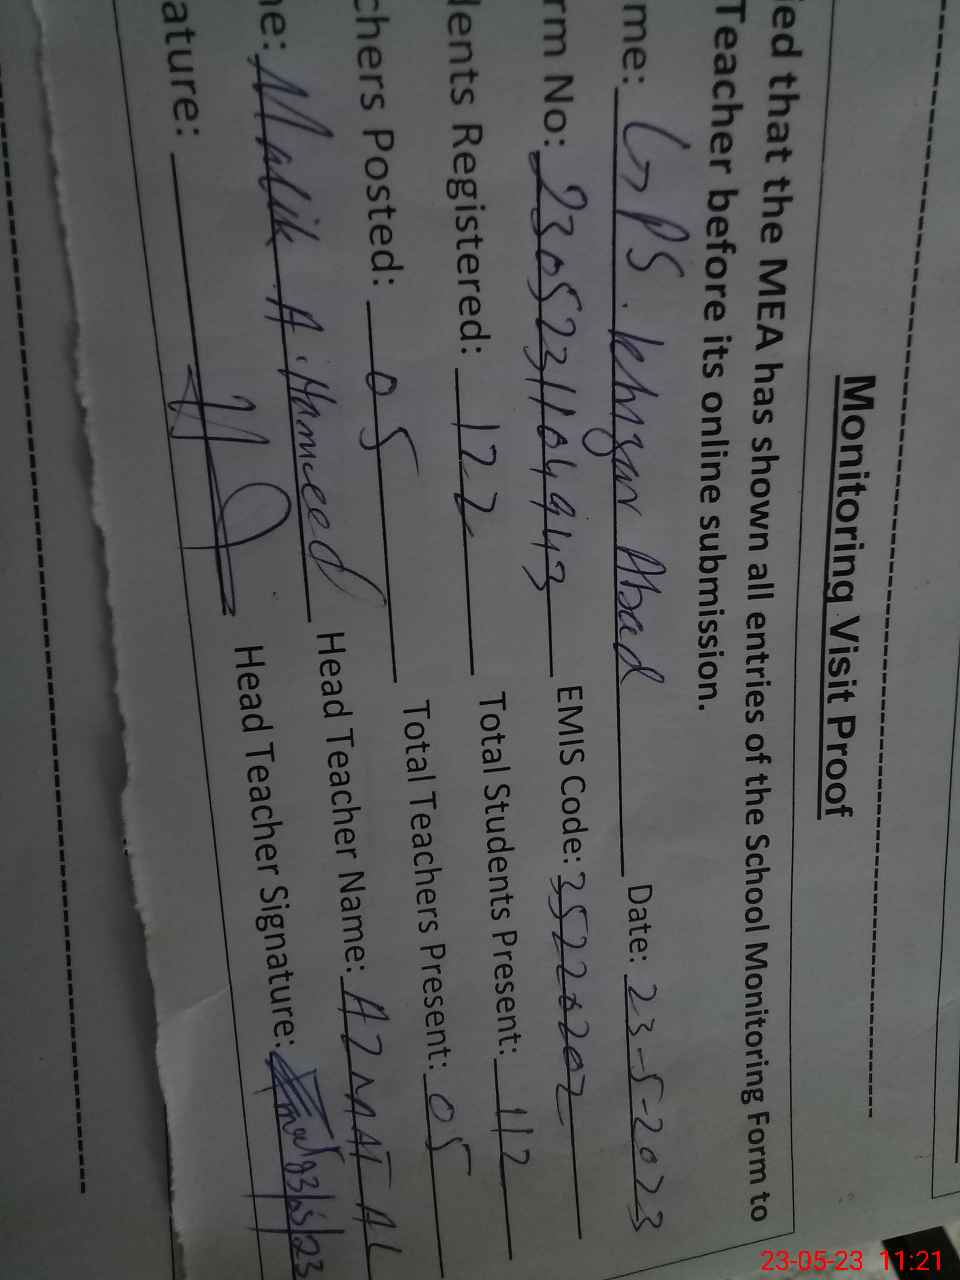 Monitoring Visit Proof
ied that the MEA has shown all entries of the School Monitoring Form to
Teacher before its online submission.
me: GPS. Khizar Abad Date: 23-5-2023
rm No: 230523110494943 EMIS Code: 35220202
dents Registered: 122 Total Students Present: 112
chers Posted: 05 Total Teachers Present: 05
ne: Malik A. Hameed Head Teacher Name: AZMAT AL
ature: Head Teacher Signature: 23/5/23
23-05-23 11:21